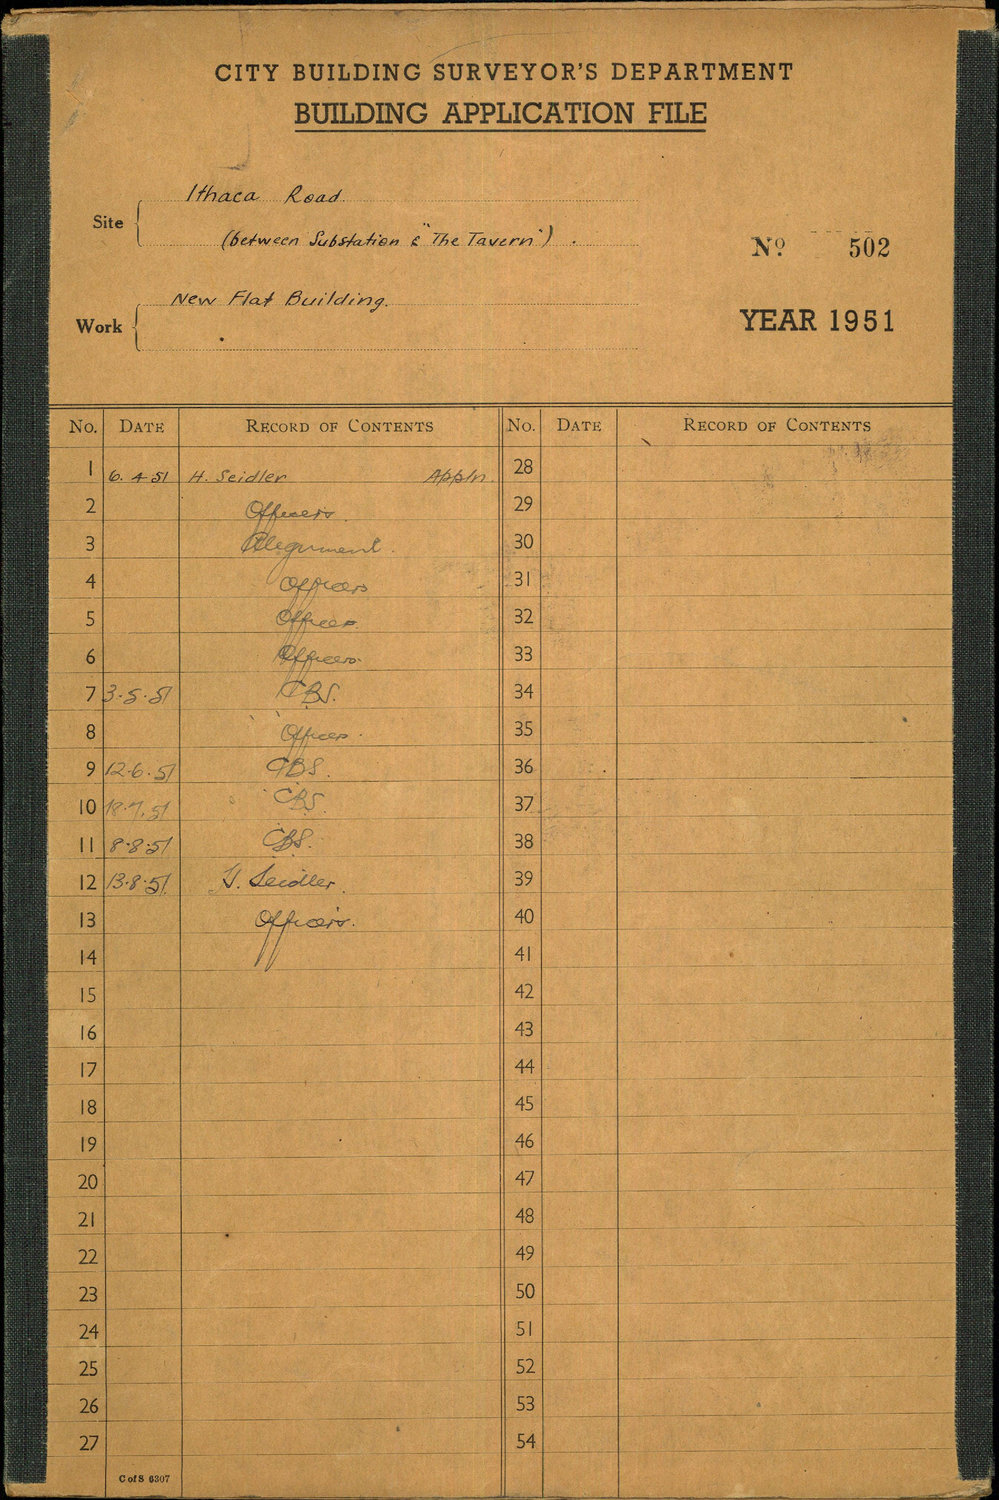 CITY BUILDING SURVEYOR'S DEPARTMENT
BUILDING APPLICATION FILE
Site
Ithaca Road.
(between Substation & "The Tavern") .
Nº 502
Work
New Flat Building.
YEAR 1951
No. DATE RECORD OF CONTENTS No. DATE RECORD OF CONTENTS
1 6.4.51 H. Seidler Appln. 28
2 Officers. 29
3 Alignment. 30
4 Officers 31
5 Officer. 32
6 Officers. 33
7 3.5.51 CBS. 34
8 Officer. 35
9 12.6.51 CBS. 36
10 18.7.51 CBS. 37
11 8.8.51 CBS. 38
12 13.8.51 H. Seidler. 39
13 Officers. 40
14 41
15 42
16 43
17 44
18 45
19 46
20 47
21 48
22 49
23 50
24 51
25 52
26 53
27 54
C of S 6307